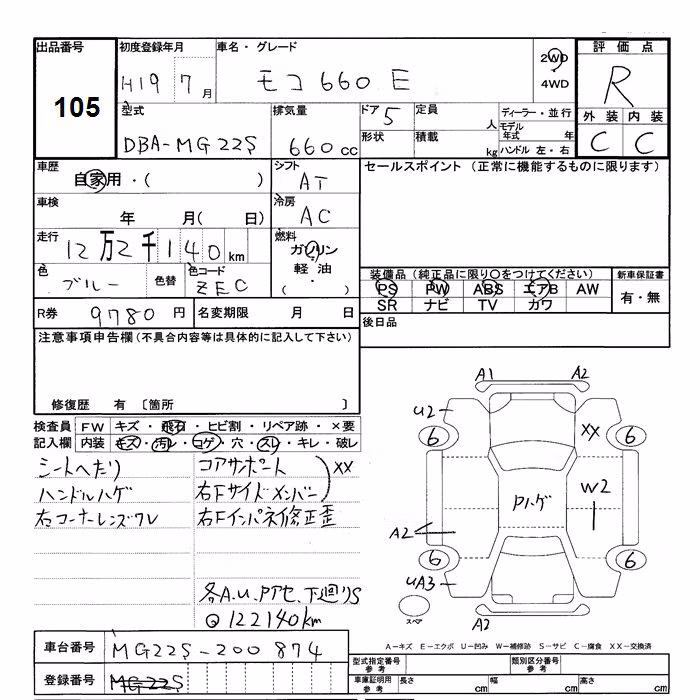 出品番号 初度登録年月 車名・グレード 2WD 評価点
105 H19 7月 モコ660 E 4WD R
型式 排気量 ドア 5 定員 人 ディーラー・並行 外装 内装
DBA-MG22S 660cc 形状 積載 kg モデル年式 年 C C
ハンドル 左・右
車歴 自家用・( ) シフト AT セールスポイント (正常に機能するものに限ります)
車検 年 月( 日) 冷房 AC
走行 12万2千140km 燃料 ガソリン
軽油・( )
色 ブルー 色替 色コード ZEC 装備品 (純正品に限り○をつけてください) 新車保証書
PS PW ABS エアB AW 有・無
SR ナビ TV カワ
R券 9780円 名変期限 月 日 後日品
注意事項申告欄(不具合内容等は具体的に記入して下さい)
修復歴 有 〔箇所 〕
検査員 FW キズ・飛石・ヒビ割・リペア跡・×要
記入欄 内装 キズ・汚レ・コゲ・穴・スレ・キレ・破レ
シートへたり コアサポート XX
ハンドルハゲ 右Fサイドメンバー
右コーナーレンズワレ 右Fインパネ修正歪
各A.U.Pアセ、下廻りS
@122140km
A1 A2
U2 XX
6 6
Pハゲ W2
A2
6 6
UA3
スペア A2
A-キズ E-エクボ U-凹み W-補修跡 S-サビ C-腐食 XX-交換済
車台番号 MG22S-200874 型式指定番号 参考 類別区分番号 参考
登録番号 MG22S 車庫証明用 参考 長さ cm 幅 cm 高さ cm